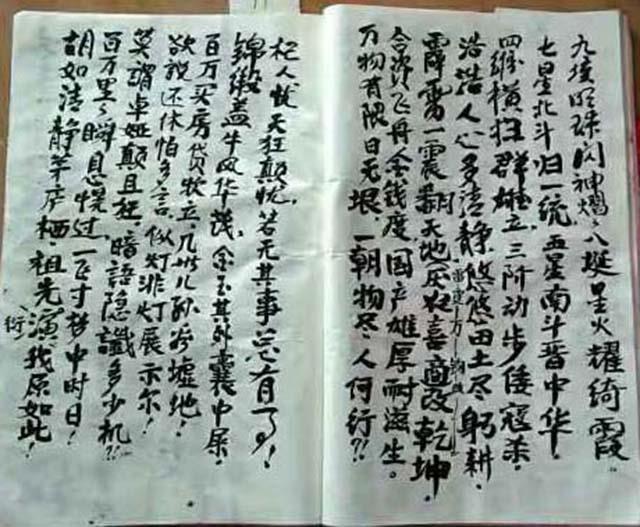 九垓明珠闪神熠,八埏星火耀绮霞。
七星北斗归一统,五星南斗晋中华。
四维横扫群雄立,三阶动步倭寇杀。
浩浩人心多清静,悠悠田土尽躬耕。
霹雳一震翻天地,厌农喜商改乾坤。
合资飞舟金钱度,国产雄厚耐滋生。
万物有限日无垠,一朝物尽人何行?!
杞人忧天狂颠忧,若无其事总有了!
锦缎盖牛风华茂,金玉其外囊中屎。
百万买房贷牧立,几世儿孙成墟地!
欲说还休怕多言,似灯非灯展示尔!
莫谓卓娅颠且狂,暗语隐谶多少机?!
百万里之瞬息恍过,一寸梦中时日!
胡如清静茅庐栖,祖先演我原如此!
(衍)